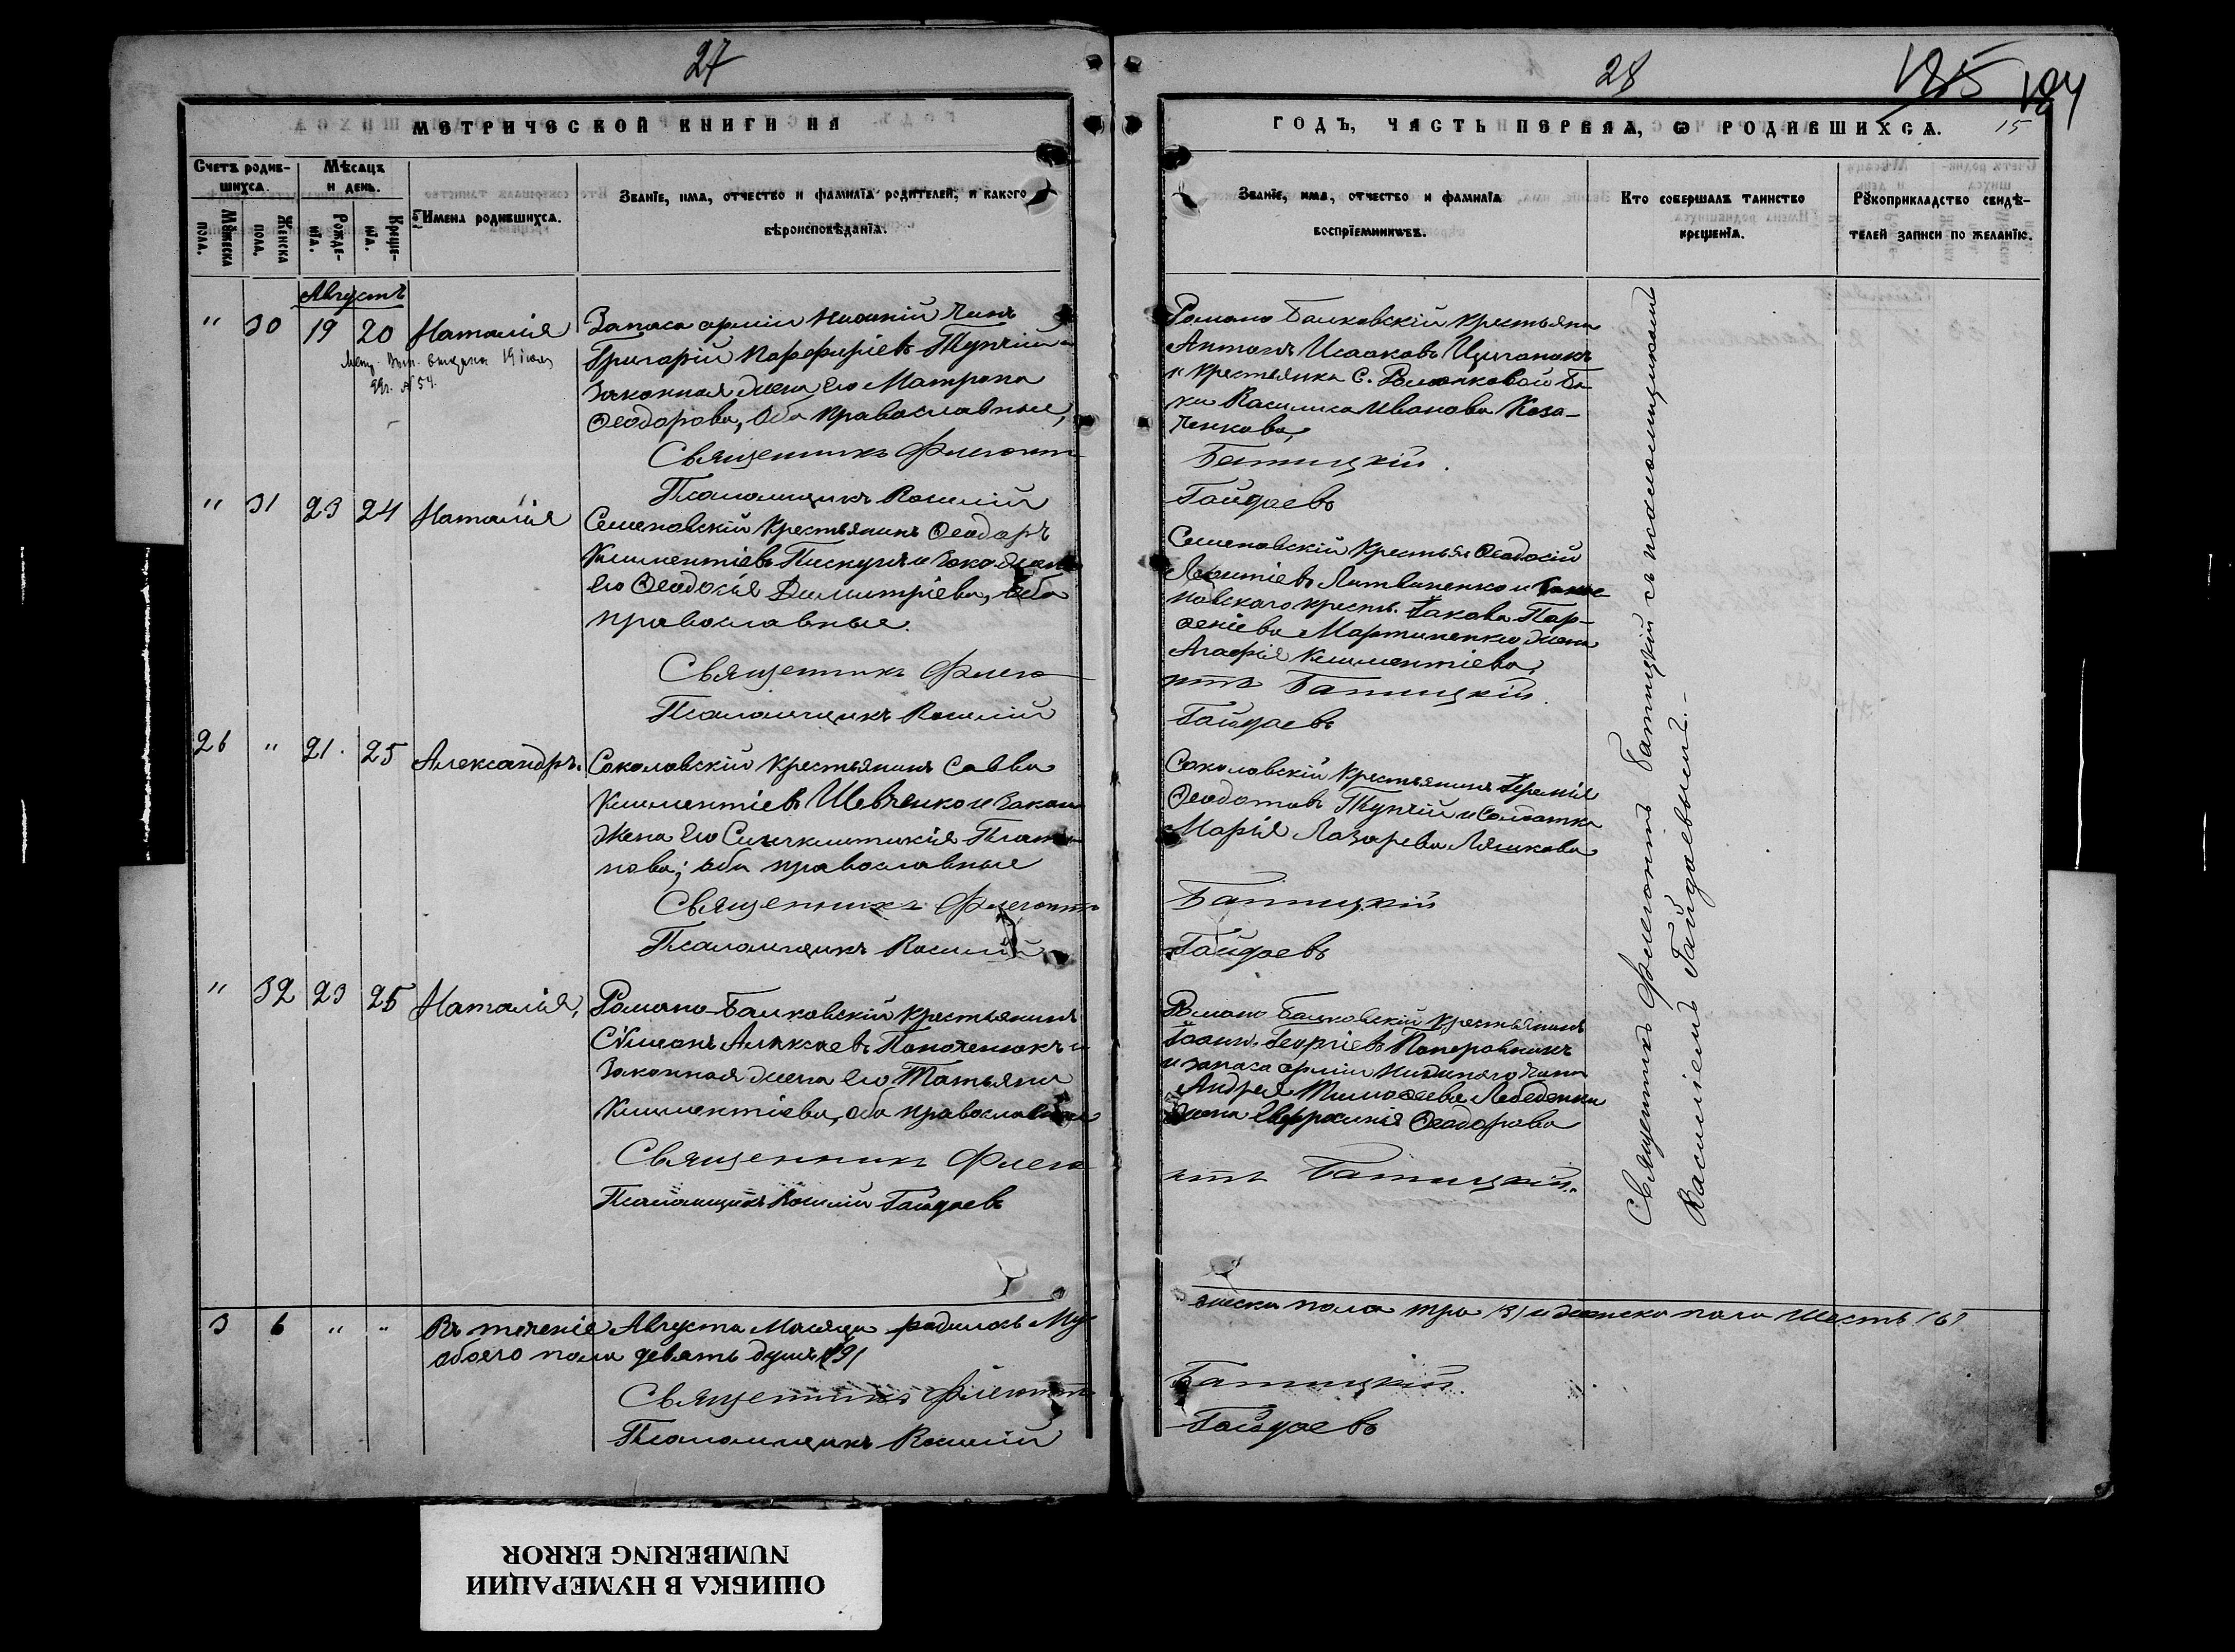 27
МЕТРИЧЕСКОЙ КНИГИ НА
Счетъ родив-
шихся.
Мѣсяцъ
и день.
Имена родившихся.
Званіе, имя, отчество и фамилія родителей, и какого
вѣроисповѣданія.
Мужеска
пола.
Женска
пола.
Рожде-
нія.
Креще-
нія.
Августъ
" 30 19 20 Наталія
Запаса арміи нижній чинъ
Григорій Парфиріевъ Тупчій и
законная жена его Матрона
Ѳеодорова, оба православные,
Священникъ Флегонтъ
Псаломщикъ Василій
" 31 23 24 Наталія
Семеновскій крестьянинъ Ѳеодоръ
Климентіевъ Пискунъ и зако жена
его Ѳеодосія Димитріева, оба
православные.
Священникъ Флего
Псаломщикъ Василій
26 " 21. 25 Александръ.
Соколовскій крестьянинъ Савва
Климентіевъ Шевченко и закон
жена его Синклитикія Плато
нова; оба православные
Священникъ Флегонтъ
Псаломщикъ Василій
" 32 23 25 Наталія,
Романо-Балковскій крестьянинъ
Сѵмеонъ Алексѣевъ Паноченюкъ и
законная жена его Татьяна
Климентіева, оба православные
Священникъ Флего
Псаломщикъ Василій Гайдаевъ
3 6 " " Въ теченіе Августа мѣсяца родилось му
обоего пола девять душъ (9)
Священникъ Флегонтъ
Псаломщикъ Василій
28
185 184
15
ГОДЪ, ЧАСТЬ ПЕРВАЯ, Ѡ РОДИВШИХСЯ.
Званіе, имя, отчество и фамилія
воспріемниковъ.
Кто совершалъ таинство
крещенія.
Рукоприкладство свидѣ-
телей записи по желанію.
Романо Балковскій крестьяни
Антонъ Исааковъ Цыганокъ
и крестьянка с. Романковой Ба
ки Василиса Иванова Коза-
ченкова,
Батицкій.
Гайдаевъ
Семеновскій крестьян Ѳеодосій
Леонтіевъ Литвиненко и
новскаго кресть. Іакова Пар-
ѳеніева Мартиненко жена
Агафія Климентіева,
нтъ Батицкій.
Гайдаевъ
Соколовскій крестьянинъ Іеремія
Ѳеодотовъ Тупчій и солдатка
Марія Лазарева Ляшкова
Батицкій
Гайдаевъ
Романо Балковскій крестьянинъ
Іоаннъ Георгіевъ Паперовникъ
и запаса арміи нижняго чина
Андрея Тимоѳеева Лебеденка
жена Евфросинія Ѳеодорова
нтъ Батицкій.
Священникъ Флегонтъ Батицкій съ псаломщикомъ
Василіемъ Гайдаевымъ.
жеска пола три (3) и женска пола шесть (6)
Батицкій.
Гайдаевъ
ОШИБКА В НУМЕРАЦИИ
NUMBERING ERROR